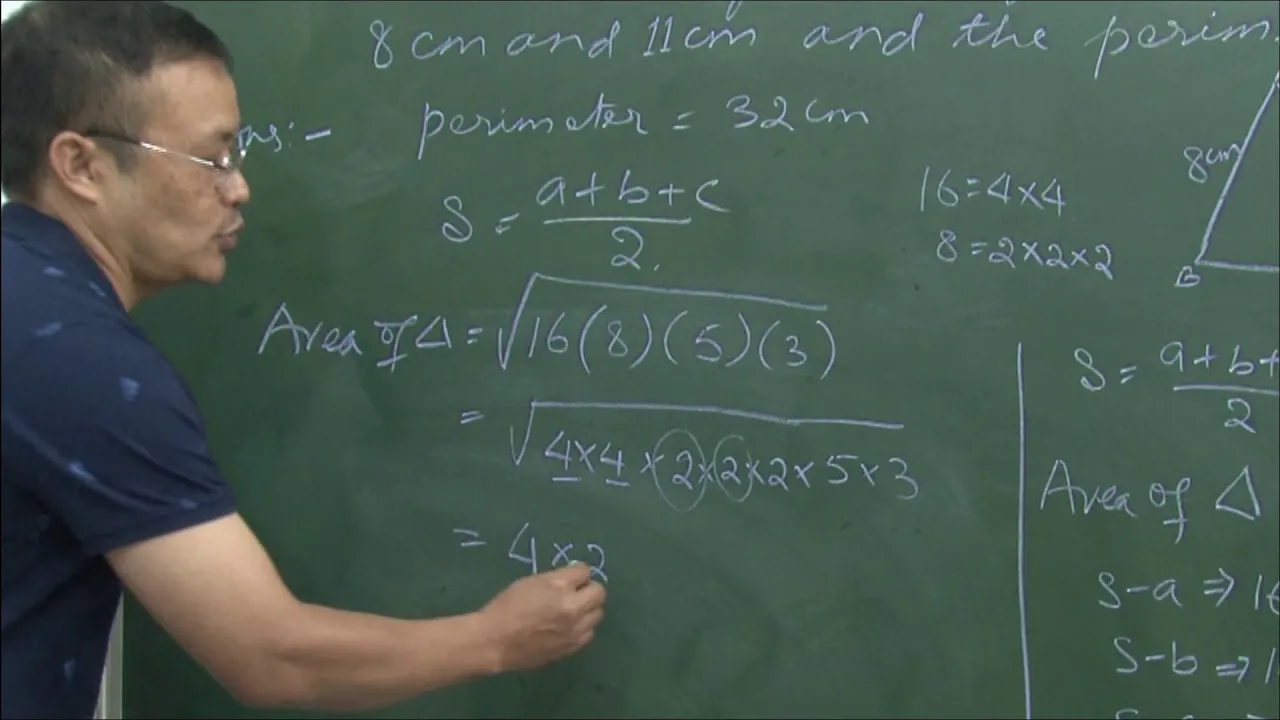 8cm and 11cm and the perim
Ans:- perimeter = 32cm
S = a+b+c
2
16=4×4
8=2×2×2
8cm
B
Area of Δ = √16(8)(5)(3)
= √4×4×2×2×2×5×3
= 4×2
S = a+b+
2
Area of Δ
S-a ⇒ 16
S-b ⇒ 1